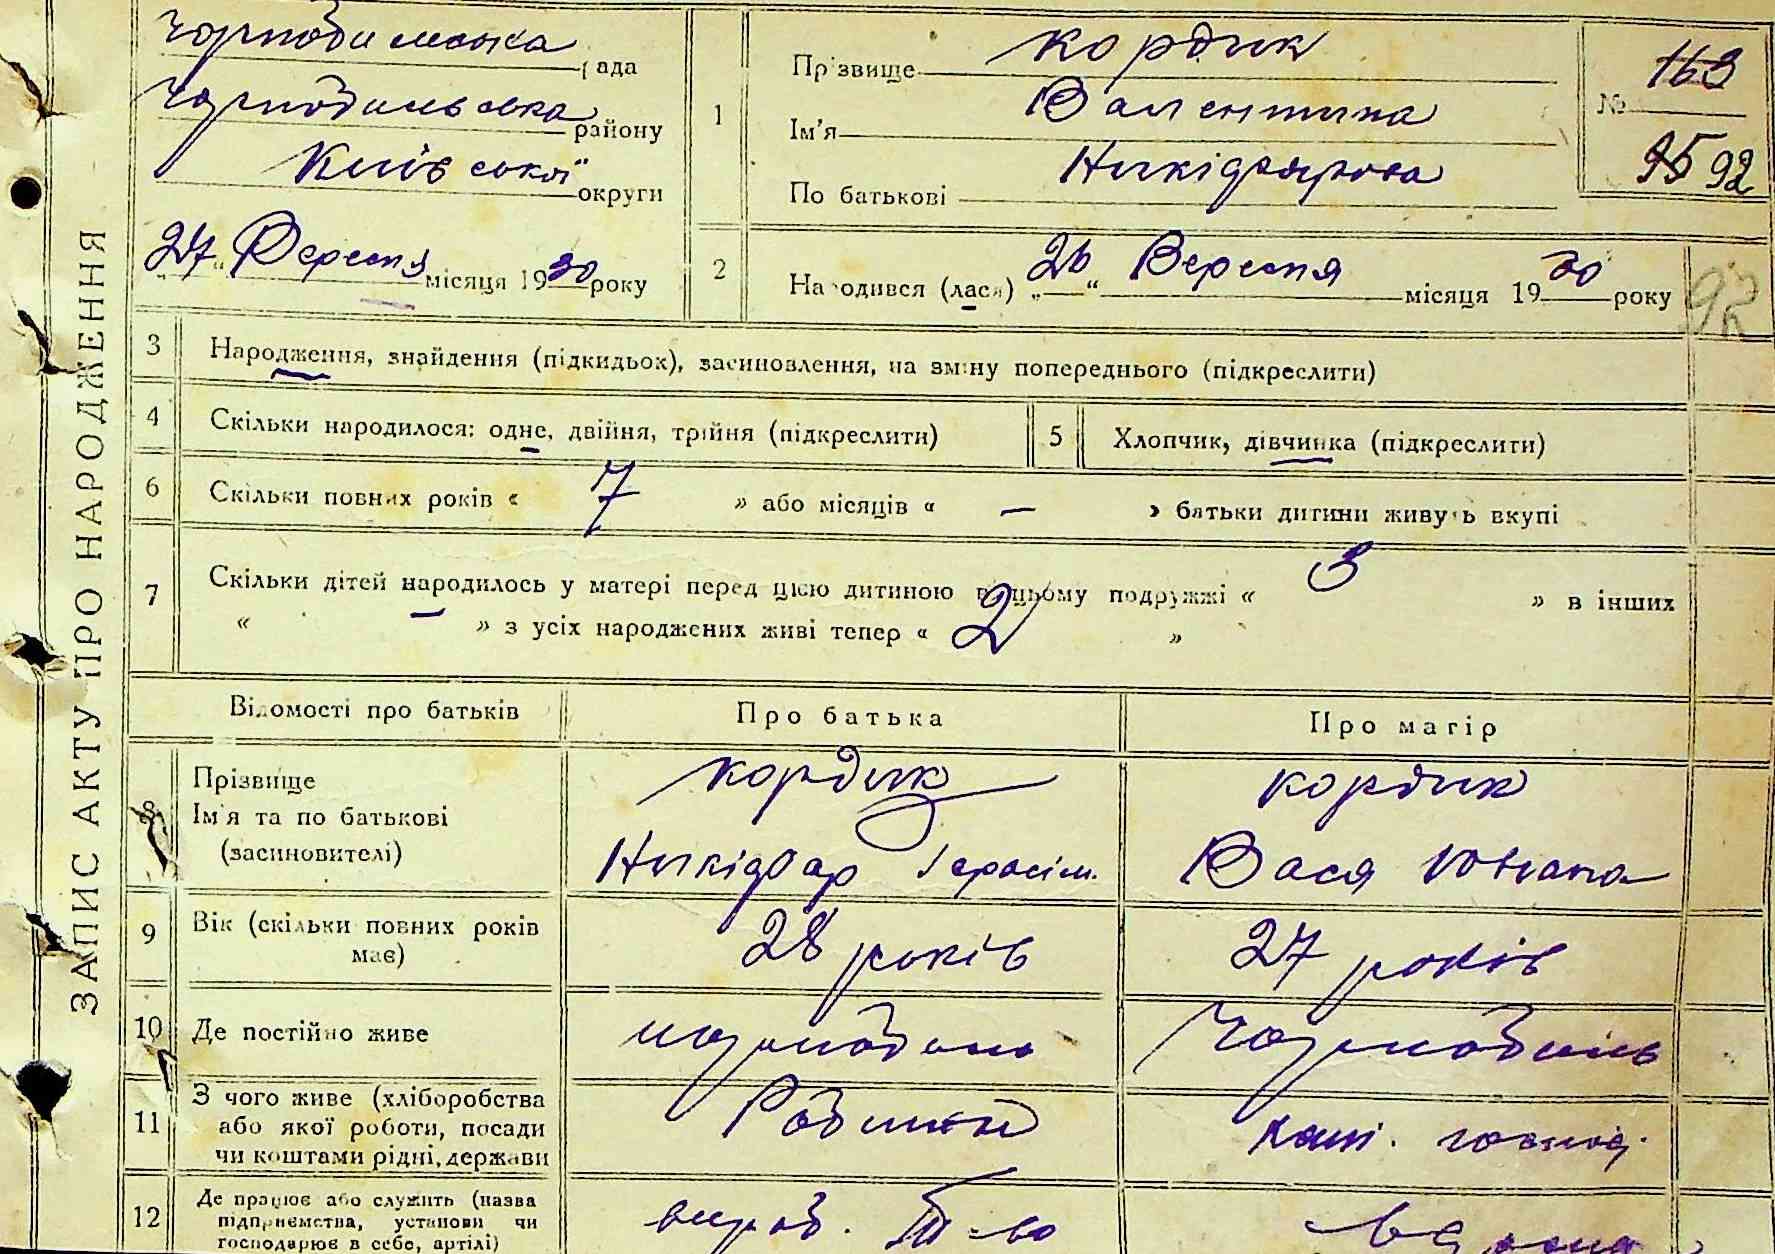 ЗАПИС АКТУ ПРО НАРОДЖЕННЯ
Чорнобильська рада
Чорнобильська району
Київської округи
„27“ Вересня місяця 1930 року
1
Прізвище Кордик
Ім'я Валентина
По батькові Никіфярова
№ 163
95 92
2
Народився (лася) „26“ Вересня місяця 1930 року
92
3 Народження, знайдення (підкидьох), засиновлення, на зміну попереднього (підкреслити)
4 Скільки народилося: одне, двійня, трійня (підкреслити)
5 Хлопчик, дівчинка (підкреслити)
6 Скільки повних років « 7 » або місяців « — » батьки дитини живуть вкупі
7 Скільки дітей народилось у матері перед цією дитиною в цьому подружжі « 3 » в інших
« — » з усіх народжених живі тепер « 2 »
Відомості про батьків Про батька Про матір
8 Прізвище Кордик Кордик
Ім'я та по батькові Никіфар Герасім. Вася
(засиновителі)
9 Вік (скільки повних років має) 28 років 27 років
10 Де постійно живе Чорнобиль Чорнобиль
11 З чого живе (хліборобства
або якої роботи, посади
чи коштами рідні, держави
Робітник хатн. господ.
12 Де працює або служить (назва
підприємства, установи чи
господарює в себе, артілі)